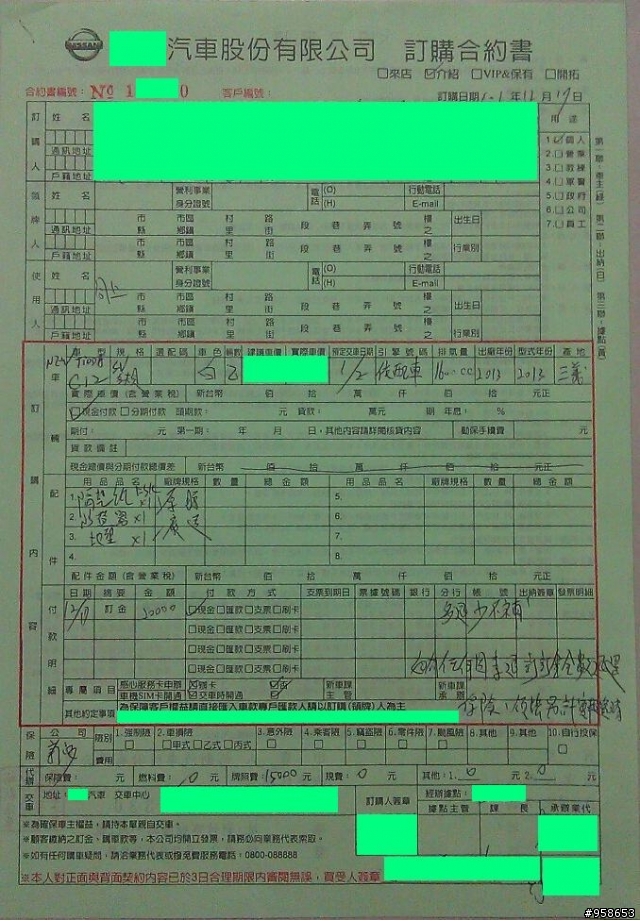 NISSAN 汽車股份有限公司 訂購合約書
□來店 ☑介紹 □VIP&保有 □開拓
合約書編號：№ 1 0 客戶編號： 訂購日期 年11月17日
訂購人 姓名 用途
通訊地址 1.☑個人
戶籍地址 2.□營業
3.□教練
4.□軍警
5.□政府
6.□公司
7.□員工
領牌人 姓名 營利事業身分證號 電話 (O) (H) 行動電話 E-mail
通訊地址 市縣 市區鄉鎮 村里 路街 段 巷 弄 號 樓之 出生日
戶籍地址 市縣 市區鄉鎮 村里 路街 段 巷 弄 號 樓之 行業別
使用人 姓名 營利事業身分證號 電話 (O) (H) 行動電話 E-mail
同上
通訊地址 市縣 市區鄉鎮 村里 路街 段 巷 弄 號 樓之 出生日
戶籍地址 市縣 市區鄉鎮 村里 路街 段 巷 弄 號 樓之 行業別
訂購內容
車輛 車型 規格 選配碼 車色 輛數 建議車價 實際車價 預定交車日期 引擎號碼 排氣量 出廠年份 型式年份 產地
C12 1/2 1600cc 2013 2013 三義
實際車價(含營業稅) 新台幣 佰 拾 萬 仟 佰 拾 元正
現金付款 □分期付款 頭期款： 元 貸款： 萬元 期 年息： %
期付： 元 第一期： 年 月 日，其他內容請詳閱核貸內容 動保手續費 元
貸款備註
現金總價與分期付款總價差 新台幣 佰 拾 萬 仟 佰 拾 元正
配件 用品品名 廠牌規格 數量 總金額 用品品名 廠牌規格 數量 總金額
1. 隔熱紙 5.
2. x1 6.
3. 地墊 x1 7.
4. 8.
配件金額(含營業稅) 新台幣 佰 拾 萬 仟 佰 拾 元正
付款明細 日期 摘要 金額 付款方式 支票到期日 票據號碼 銀行 分行 帳號 出納簽章 發票明細
訂金 □現金□匯款□支票□刷卡
□現金□匯款□支票□刷卡
□現金□匯款□支票□刷卡
□現金□匯款□支票□刷卡
專屬項目 感心服務卡申辦 辦卡 否 新車課主管 新車課
車機SIM卡開通 交車時開通
其他約定事項 為保障客戶權益請直接匯入車款專戶匯款人請以訂購(領牌)人為主
保險 公司 險別 1.強制險 2.車損險 3.意外險 4.乘客險 5.竊盜險 6.零件險 7.颱風險 8.其他 9.其他 10.自行投保
□ □甲式□乙式□丙式 □ □ □ □ □ □
費用
代辦 保險費： 元 燃料費：0元 牌照費：15000元 規費：0元 其他：1.0元 2.0元
交車 地址： 汽車 交車中心 訂購人簽章 經辦據點：
據點主管 課長 承辦業代
※為確保車主權益，請持本單親自交車。
※顧客繳納之訂金、購車款等，本公司均開立發票，請務必向業務代表索取。
※如有任何購車疑問，請洽業務代表或撥免費服務電話，0800-088888
※本人對正面與背面契約內容已於3日合理期限內審閱無誤，買受人簽章
第一聯：車主(綠) 第二聯：出納(白) 第三聯：據點(黃)
#958653